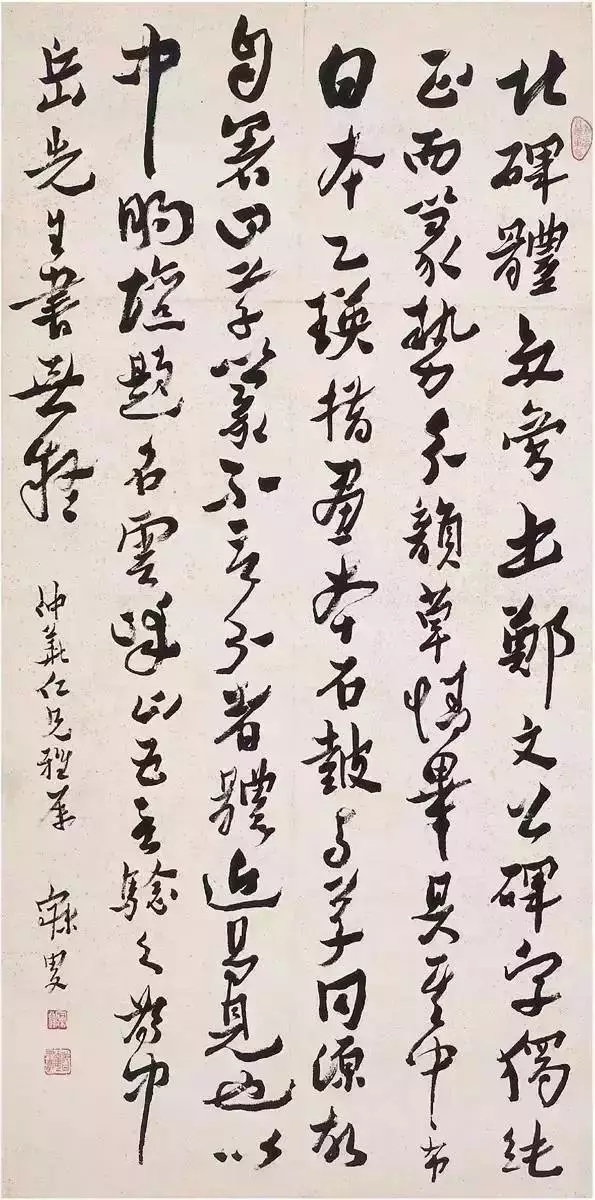 北碑體多旁出鄭文公碑字獨純
正而篆勢分韻草情畢具其中布
白本乙瑛措畫本石鼓與草同源故
自署曰草篆不言分者體近易見也以
中明壇題名雲峰山五言驗之爲中
岳先生書無疑
仲仁兄雅屬
寐叟